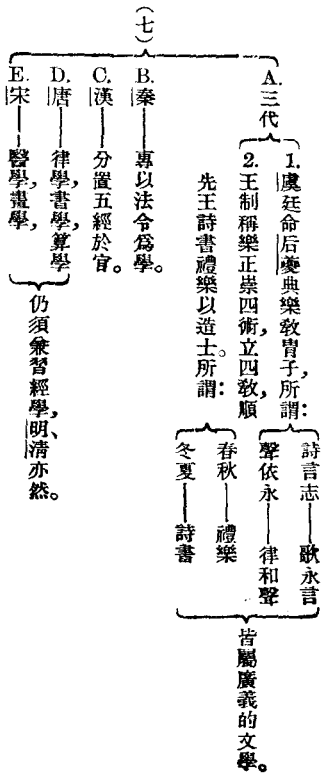 (七)
A. 三代
1. 虞廷命后夔典樂教冑子,所謂:
詩言志——歌永言
聲依永——律和聲
2. 王制稱樂正崇四術,立四教,順
先王詩書禮樂以造士。所謂:
春秋——禮樂
冬夏——詩書
皆屬廣義的文學。
B. 秦——專以法令爲學。
C. 漢——分置五經於官。
D. 唐——律學,書學,算學
E. 宋——醫學,畫學,
仍須兼習經學,明、清亦然。